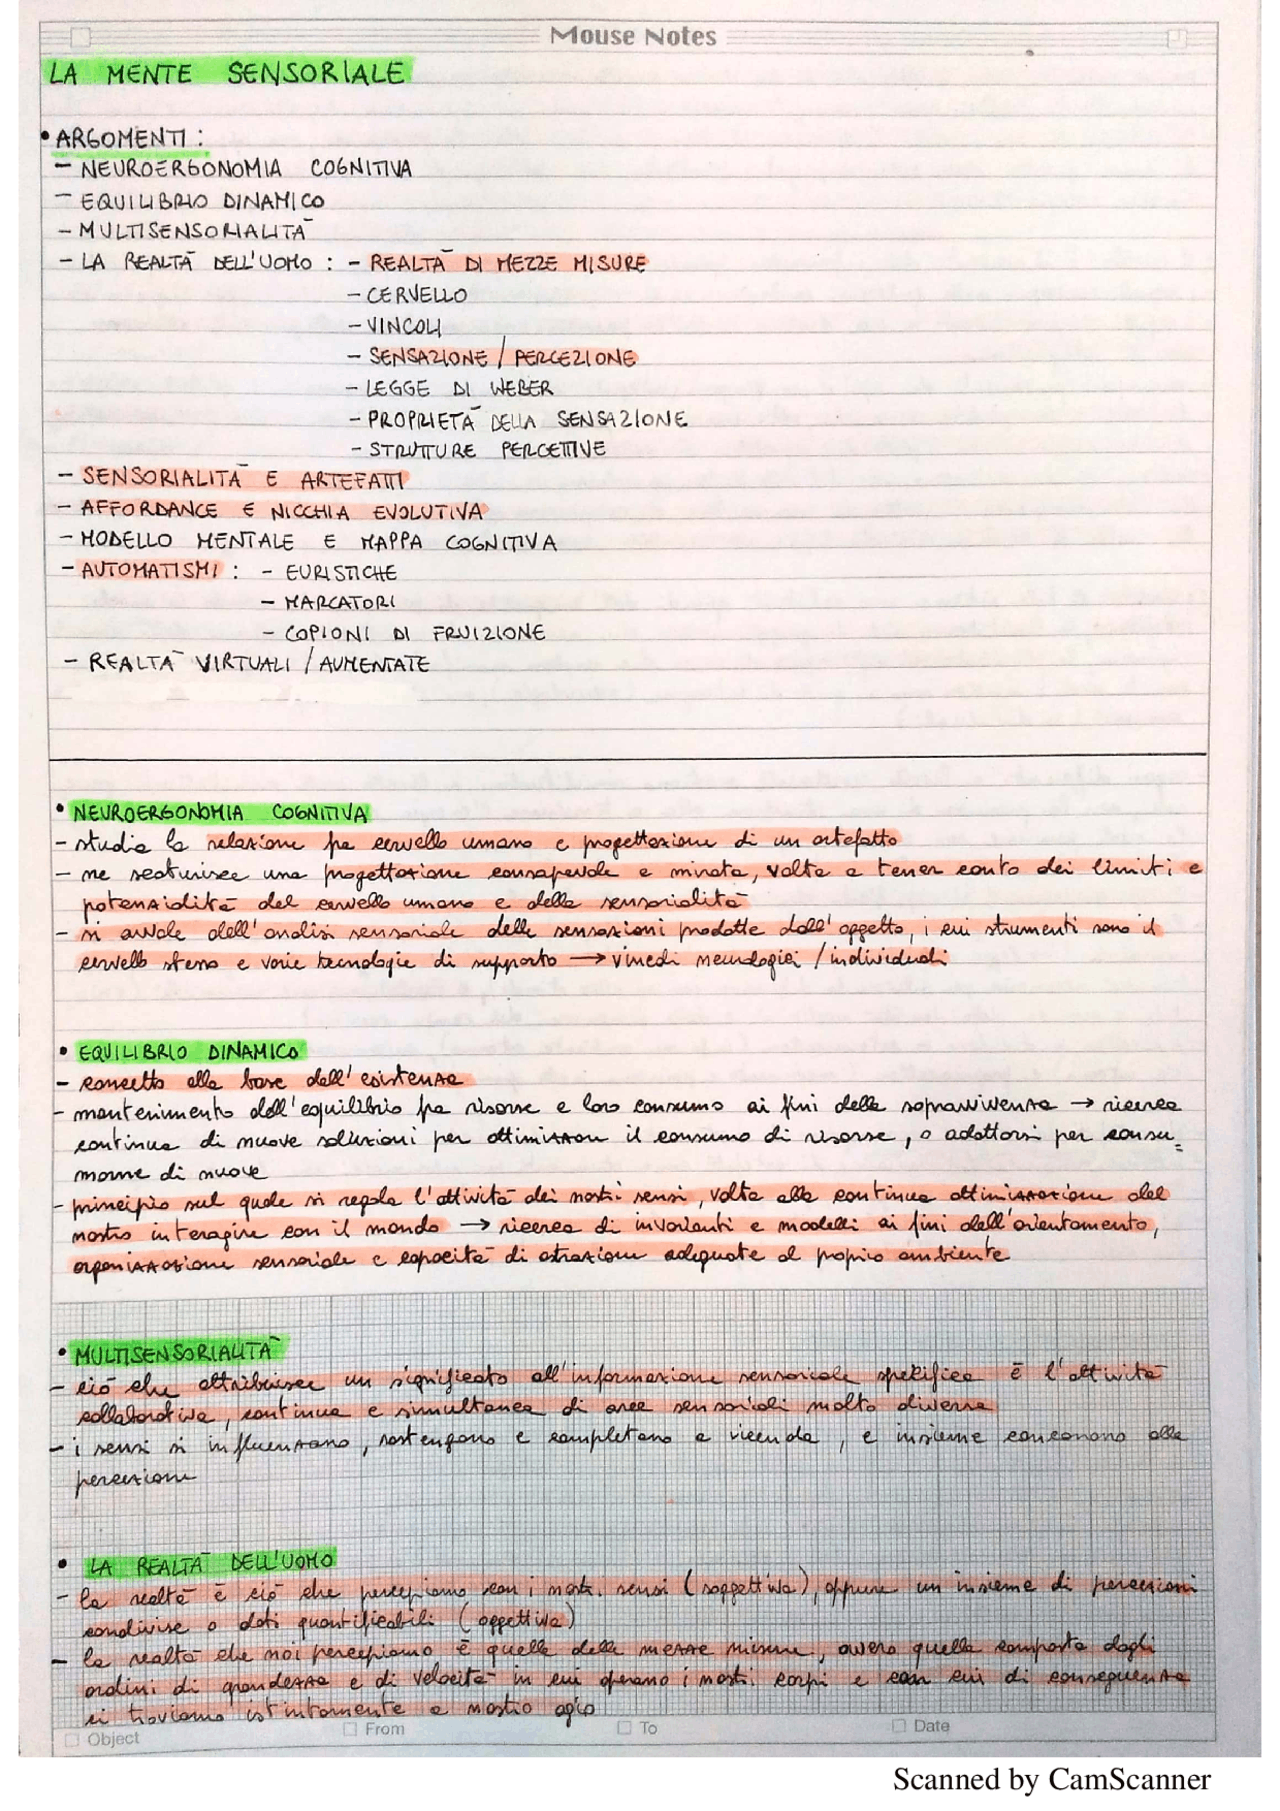 Mouse Notes
LA MENTE SENSORIALE
• ARGOMENTI:
- NEUROERGONOMIA COGNITIVA
- EQUILIBRIO DINAMICO
- MULTISENSORIALITÀ
- LA REALTÀ DELL'UOMO : - REALTÀ DI MEZZE MISURE
- CERVELLO
- VINCOLI
- SENSAZIONE / PERCEZIONE
- LEGGE DI WEBER
- PROPRIETÀ DELLA SENSAZIONE
- STRUTTURE PERCETTIVE
- SENSORIALITÀ E ARTEFATTI
- AFFORDANCE E NICCHIA EVOLUTIVA
- MODELLO MENTALE E MAPPA COGNITIVA
- AUTOMATISMI : - EURISTICHE
- MARCATORI
- COPIONI DI FRUIZIONE
- REALTÀ VIRTUALI / AUMENTATE
• NEUROERGONOMIA COGNITIVA
- studia la relazione fra cervello umano e progettazione di un artefatto
- ne scaturisce una progettazione consapevole e mirata, volta a tener conto dei limiti e
potenzialità del cervello umano e della sensorialità
- si avvale dell'analisi sensoriale delle sensazioni prodotte dall'oggetto, i cui strumenti sono il
cervello stesso e varie tecnologie di supporto → vincoli neurologici / individuali
• EQUILIBRIO DINAMICO
- concetto alla base dell'esistenza
- mantenimento dell'equilibrio fra risorse e loro consumo ai fini della sopravvivenza → ricerca
continua di nuove soluzioni per ottimizzare il consumo di risorse, o adattarsi per consu=
marne di nuove
- principio sul quale si regola l'attività dei nostri sensi, volta alla continua ottimizzazione del
nostro interagire con il mondo → ricerca di invarianti e modelli ai fini dell'orientamento,
organizzazione sensoriale e capacità di astrazione adeguate al proprio ambiente
• MULTISENSORIALITÀ
- ciò che attribuisce un significato all'informazione sensoriale specifica è l'attività
collaborativa, continua e simultanea di aree sensoriali molto diverse
- i sensi si influenzano, sostengono e completano a vicenda, e insieme concorrono alla
percezione
• LA REALTÀ DELL'UOMO
- la realtà è ciò che percepiamo con i nostri sensi (soggettiva), oppure un insieme di percezioni
condivise o dati quantificabili (oggettiva)
- la realtà che noi percepiamo è quella delle mezze misure, ovvero quella composta dagli
ordini di grandezza e di velocità in cui operano i nostri corpi e con cui di conseguenza
ci troviamo istintamente a nostro agio
Object From To Date
Scanned by CamScanner